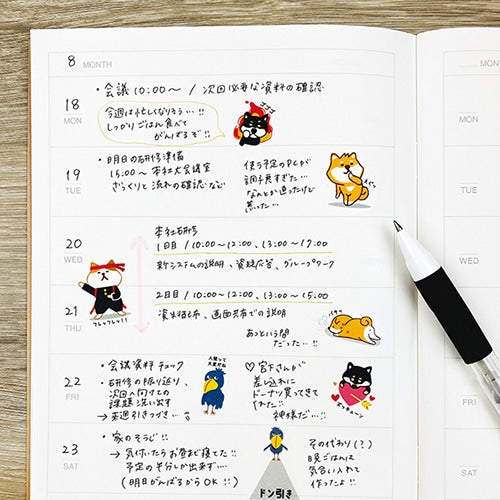 8 MONTH
18
MON
・会議 10:00〜 / 次回必要な資料の確認
今週は忙しくなりそう…!!
しっかりごはん食べて
がんばるぞ!!
19
TUE
・明日の研修準備
15:00〜 本社大会議室
ざっくりと流れの確認など
使う予定のPCが
調子悪すぎた…
なんとか直ったけど
焦った…
20
WED
本社研修
1日目 / 10:00〜12:00、13:00〜17:00
新システムの説明、質疑応答、グループワーク
フレッフレッ!!
21
THU
2日目 / 10:00〜12:00、13:00〜15:00
資料配布、画面共有での説明
あっという間
だった…!!
22
FRI
・会議資料チェック
・研修の振り返り、
次回へ向けての
課題洗い出す
→来週引きつづき…
人間って
大変だね
♡宮下さんが
差し入れに
ドーナツ買ってきて
くれた!!
神様だ…!!
ズッキューン
23
SAT
・家のそうじ!!
→気付いたらお昼まで寝てた!!
予定の半分しか出来ず…
(明日がんばるからOK!!)
ドン引き
その代わり(?)
昼ごはんは
気合い入れて
作った!!